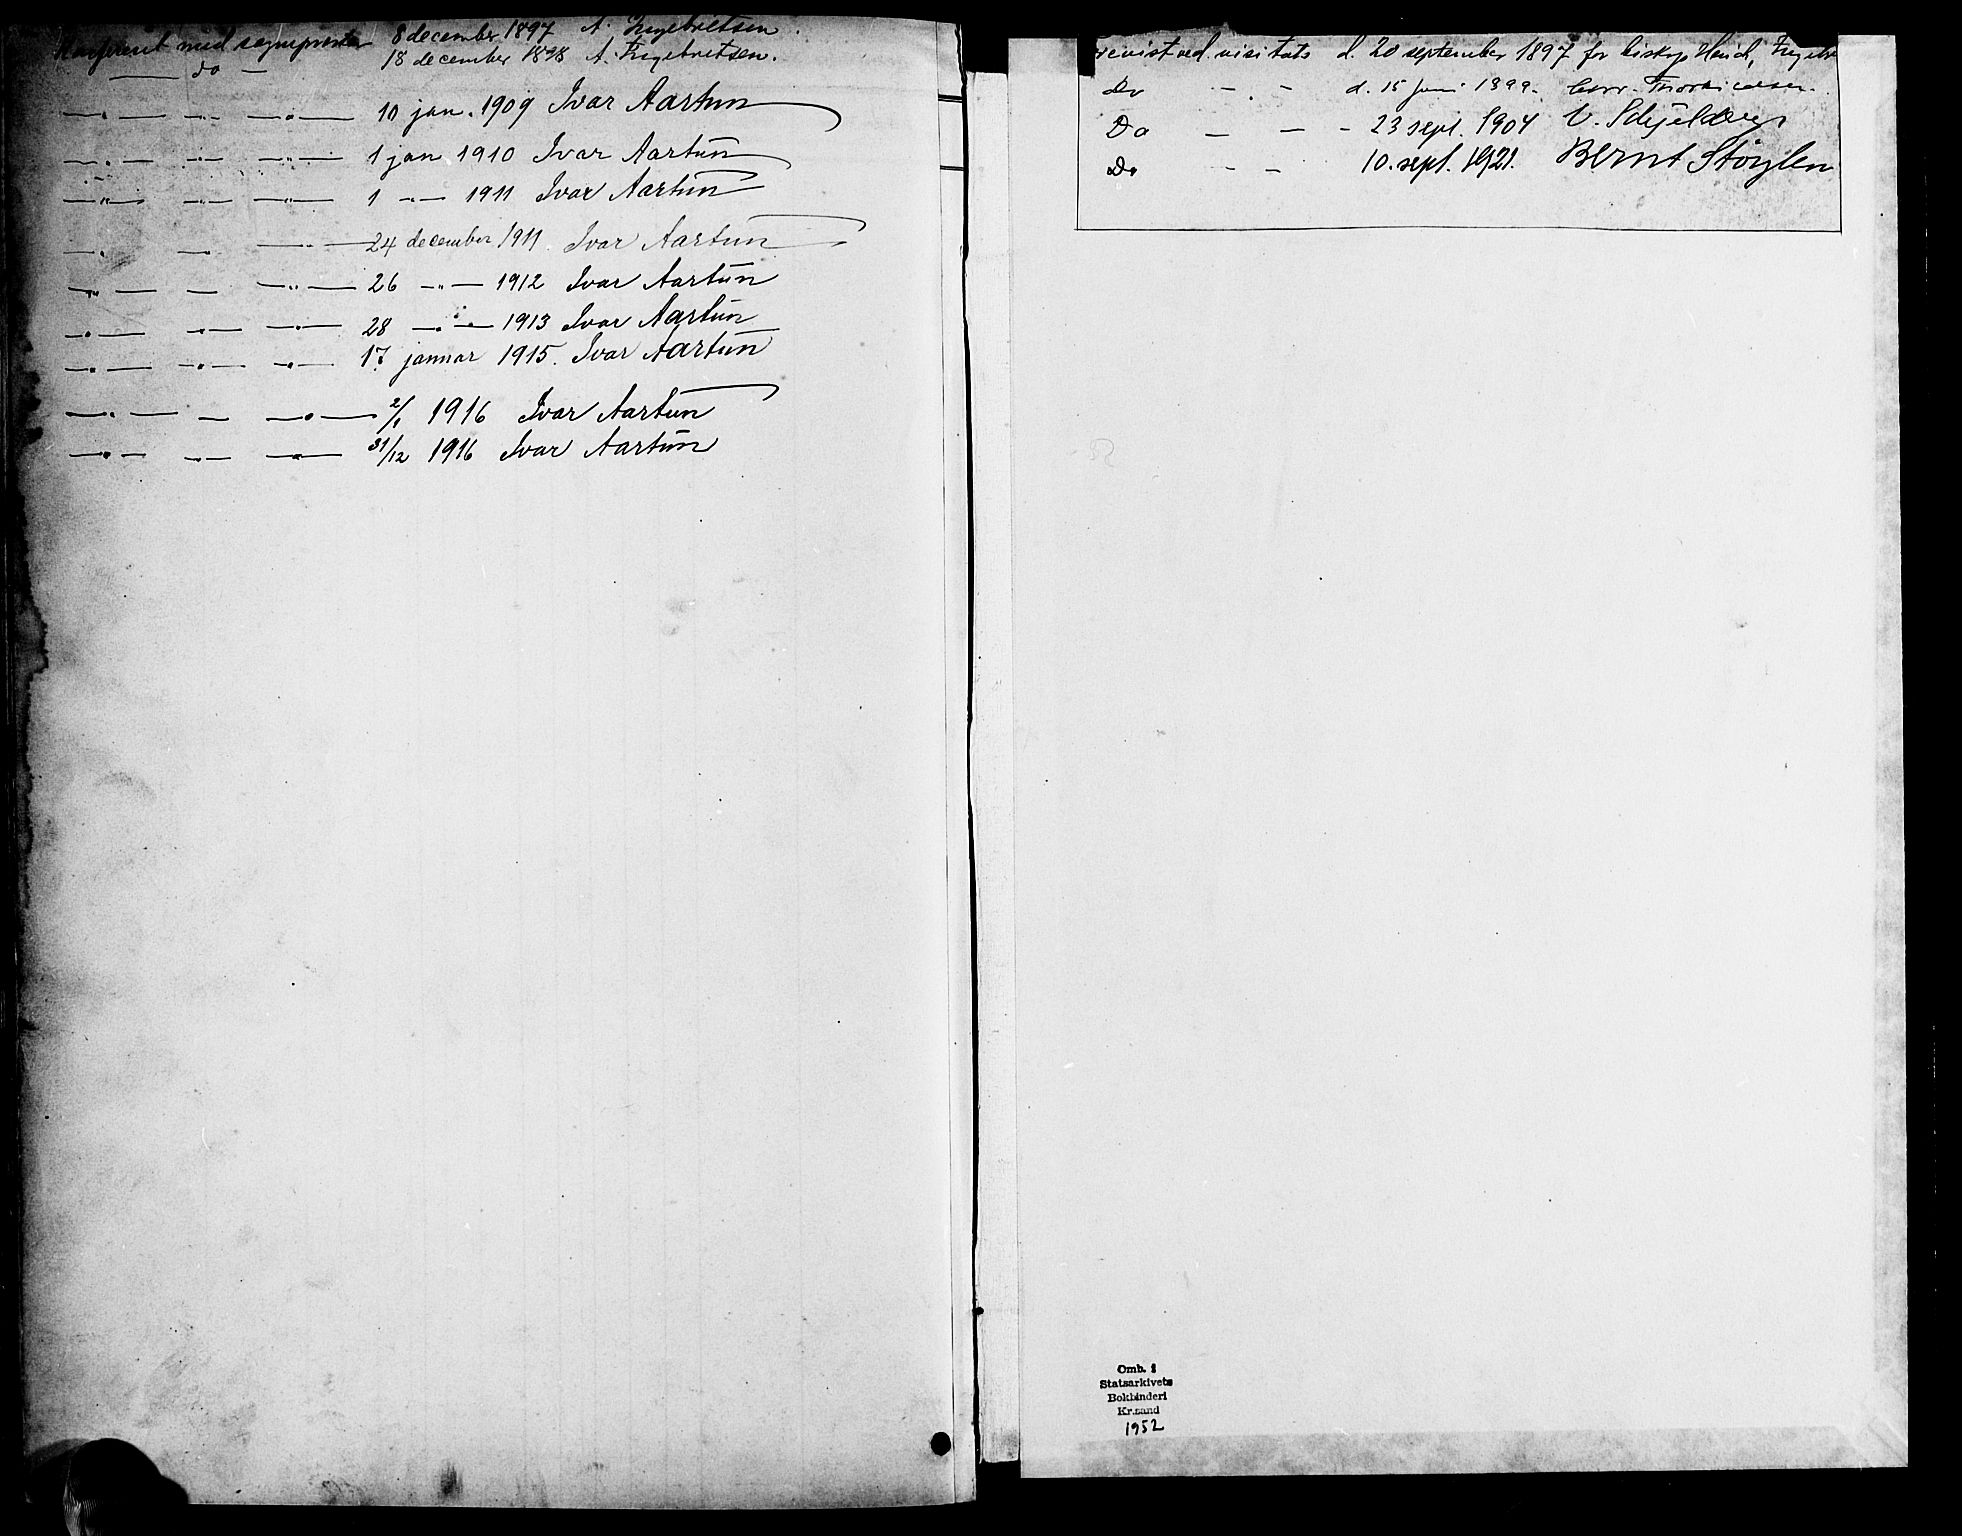 Konfereret med sogneprestens 8 december 1897 A. Ingebretsen.
— do — 18 december 1898 A. Ingebretsen.
—"— —"— —"— 10 jan. 1909 Ivar Aartun
—"— —"— —"— 1 jan 1910 Ivar Aartun
—"— —"— —"— 1 —"— 1911 Ivar Aartun
—"— — —"— 24 december 1911. Ivar Aartun
—"— — —"— 26 —"— 1912 Ivar Aartun
—"— —"— —"— 28 —"— 1913 Ivar Aartun
—"— —"— —"— 17 januar 1915. Ivar Aartun
—"— — —"— 2/1 1916 Ivar Aartun
—"— —"— —"— 31/12 1916 Ivar Aartun
revist ved visitats d. 20 september 1897 for biskop Heuch,
Do - - d. 15 juni 1899.
Do - - - 23 sept. 1904 V. Schjelderup
Do - - 10. sept. 1921. Bernt Støylen
Omb. i
Statsarkivets
Bokbinderi
Kr.sand
1952